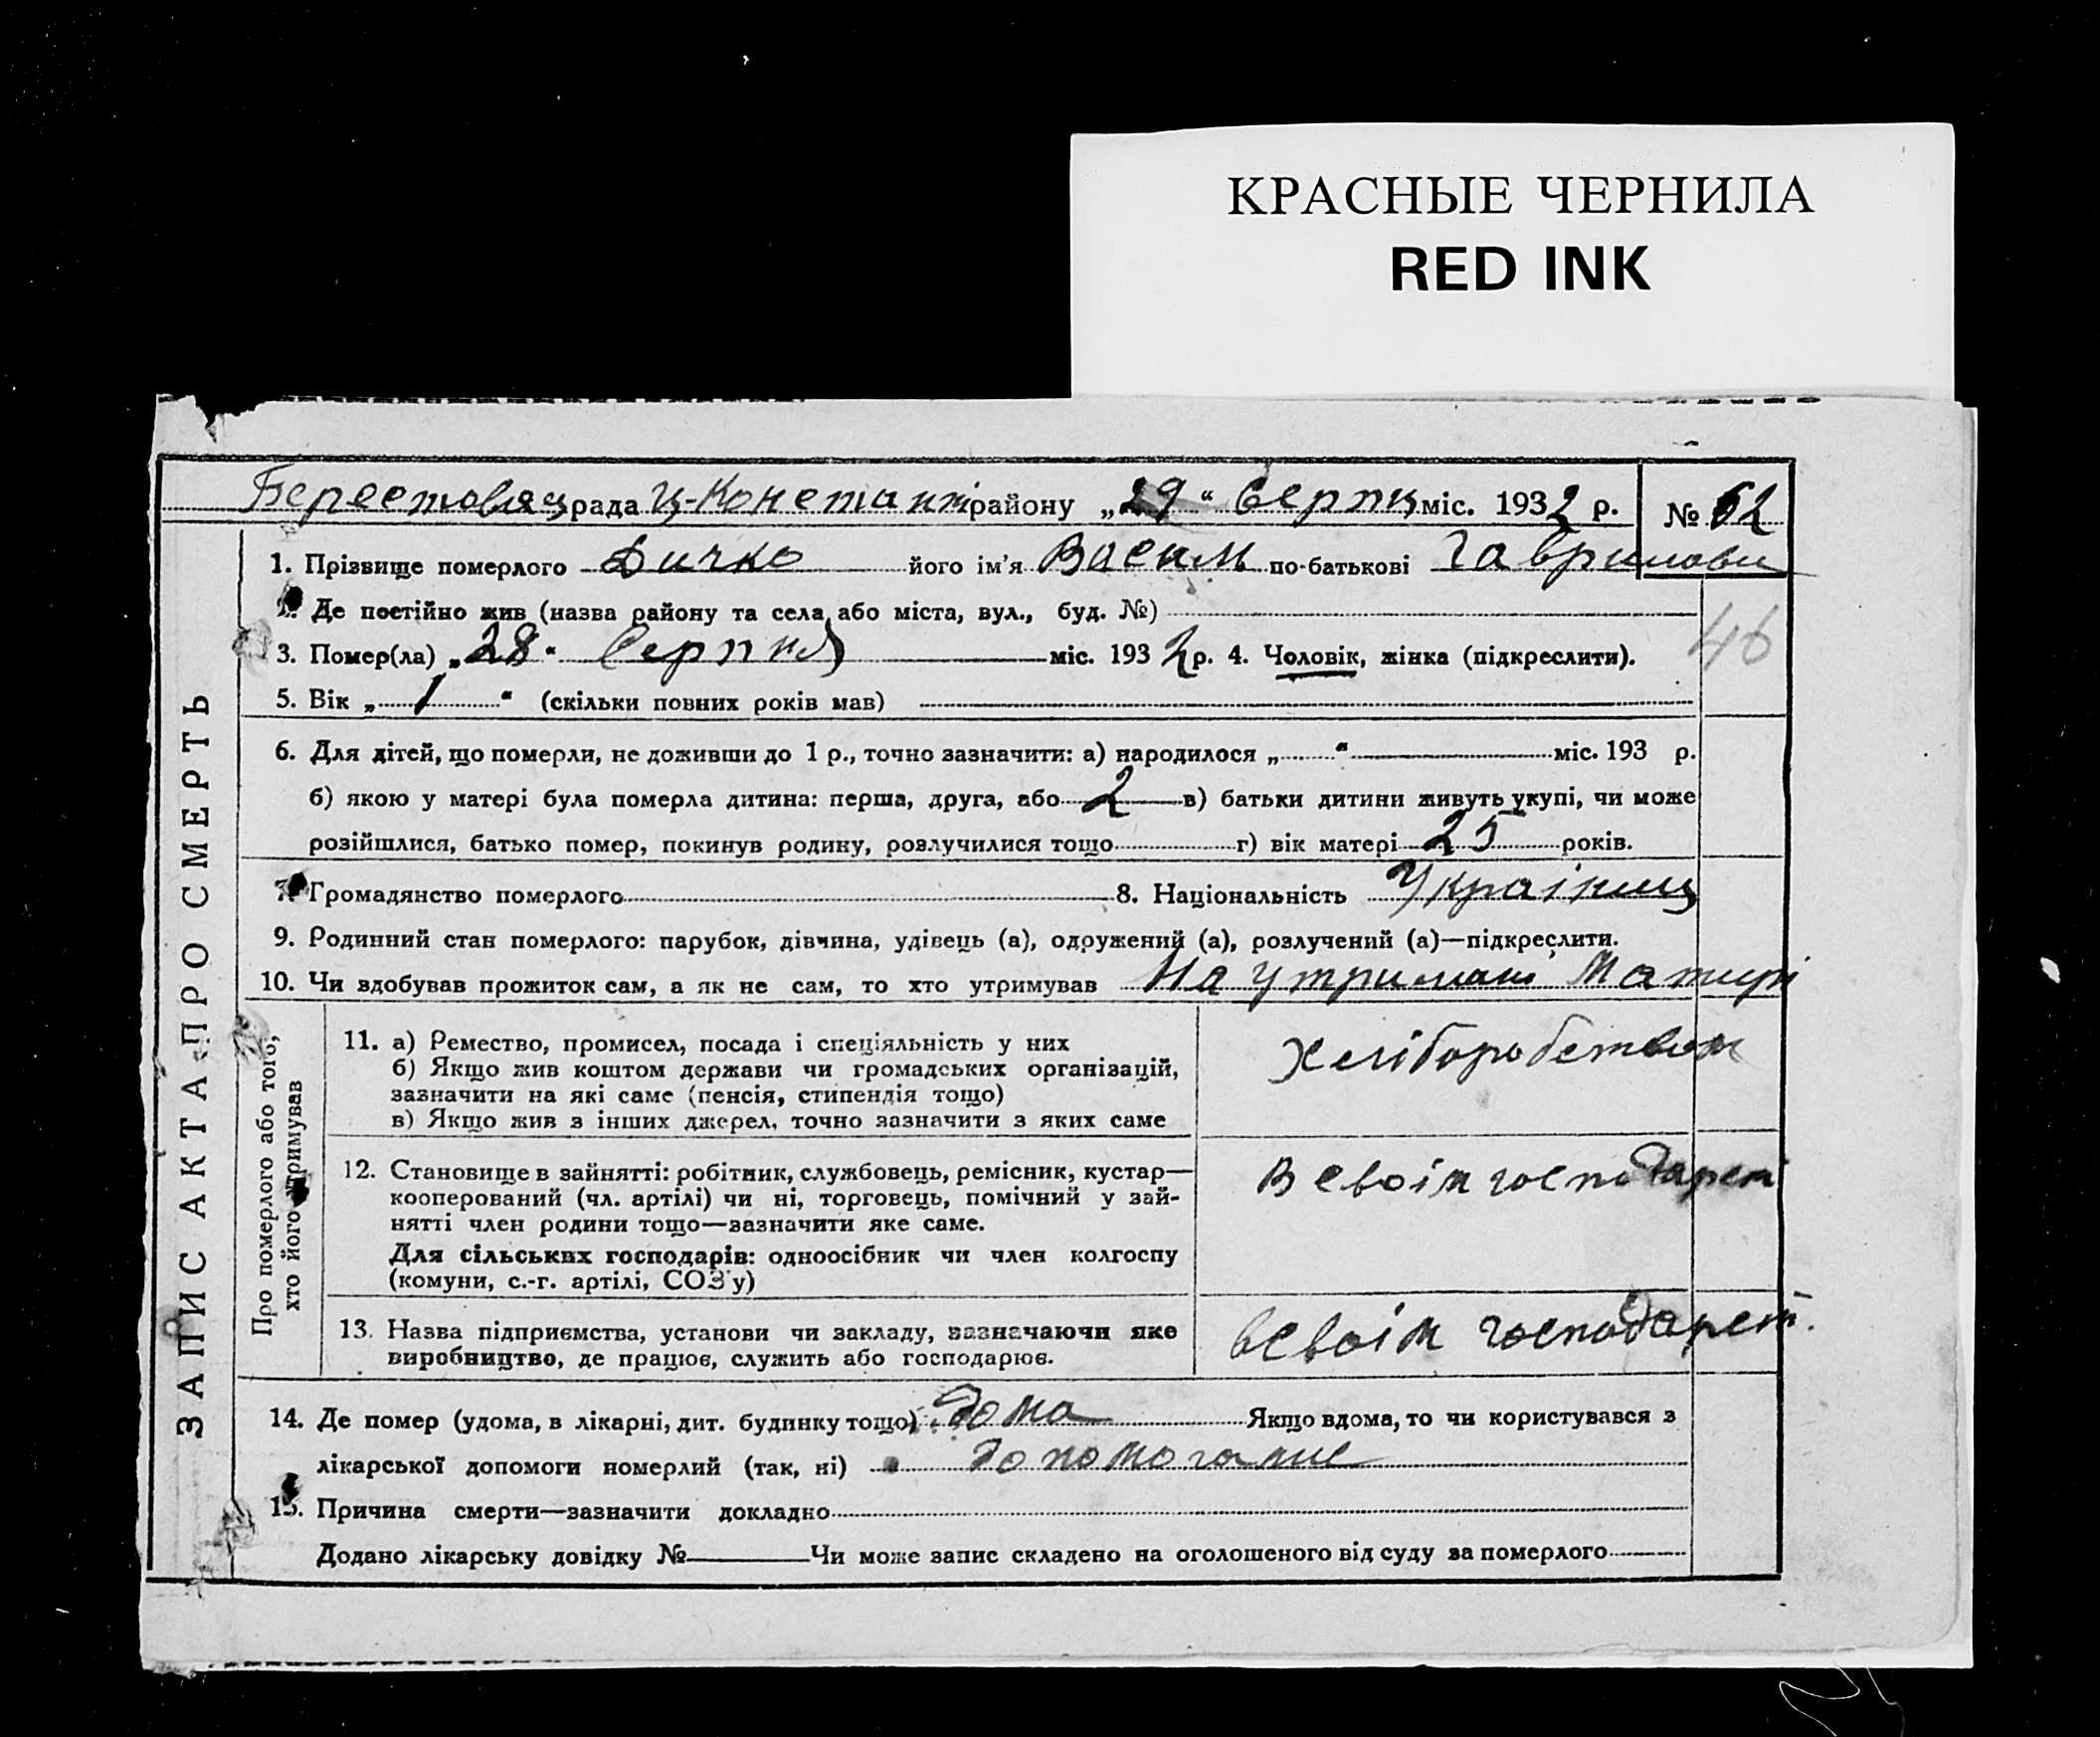 КРАСНЫЕ ЧЕРНИЛА
RED INK
ЗАПИС АКТА ПРО СМЕРТЬ
рада району „29“ Серпц міс. 1932 р. № 62
1. Прізвище померлого Дичко його ім'я Василь по-батькові Гаврилови
2. Де постійно жив (назва району та села або міста, вул., буд. №)
46
3. Помер(ла) „28“ Серпня міс. 1932 р. 4. Чоловік, жінка (підкреслити).
5. Вік „1“ (скільки повних років мав)
6. Для дітей, що померли, не доживши до 1 р., точно зазначити: а) народилося „ “ міс. 193 р.
б) якою у матері була померла дитина: перша, друга, або 2 в) батьки дитини живуть укупі, чи може
розійшлися, батько помер, покинув родину, розлучилися тощо г) вік матері 25 років.
7. Громадянство померлого 8. Національність Україниц
9. Родинний стан померлого: парубок, дівчина, удівець (а), одружений (а), розлучений (а)—підкреслити.
10. Чи здобував прожиток сам, а як не сам, то хто утримував На утримані Матирі
Про померлого або того,
хто його утримував
11. а) Ремество, промисел, посада і спеціяльність у них
б) Якщо жив коштом держави чи громадських організацій,
зазначити на які саме (пенсія, стипендія тощо)
в) Якщо жив з інших джерел, точно зазначити з яких саме
12. Становище в зайнятті: робітник, службовець, ремісник, кустар—
кооперований (чл. артілі) чи ні, торговець, помічний у зай-
нятті член родини тощо—зазначити яке саме.
Для сільських господарів: одноосібник чи член колгоспу
(комуни, с.-г. артілі, СОЗ'у)
В своім господарст
13. Назва підприємства, установи чи закладу, зазначаючи яке
виробництво, де працює, служить або господарює.
всвоім господарст.
14. Де помер (удома, в лікарні, дит. будинку тощо) дома Якщо вдома, то чи користувався з
лікарської допомоги померлий (так, ні)
15. Причина смерти—зазначити докладно
Додано лікарську довідку № Чи може запис складено на оголошеного від суду за померлого